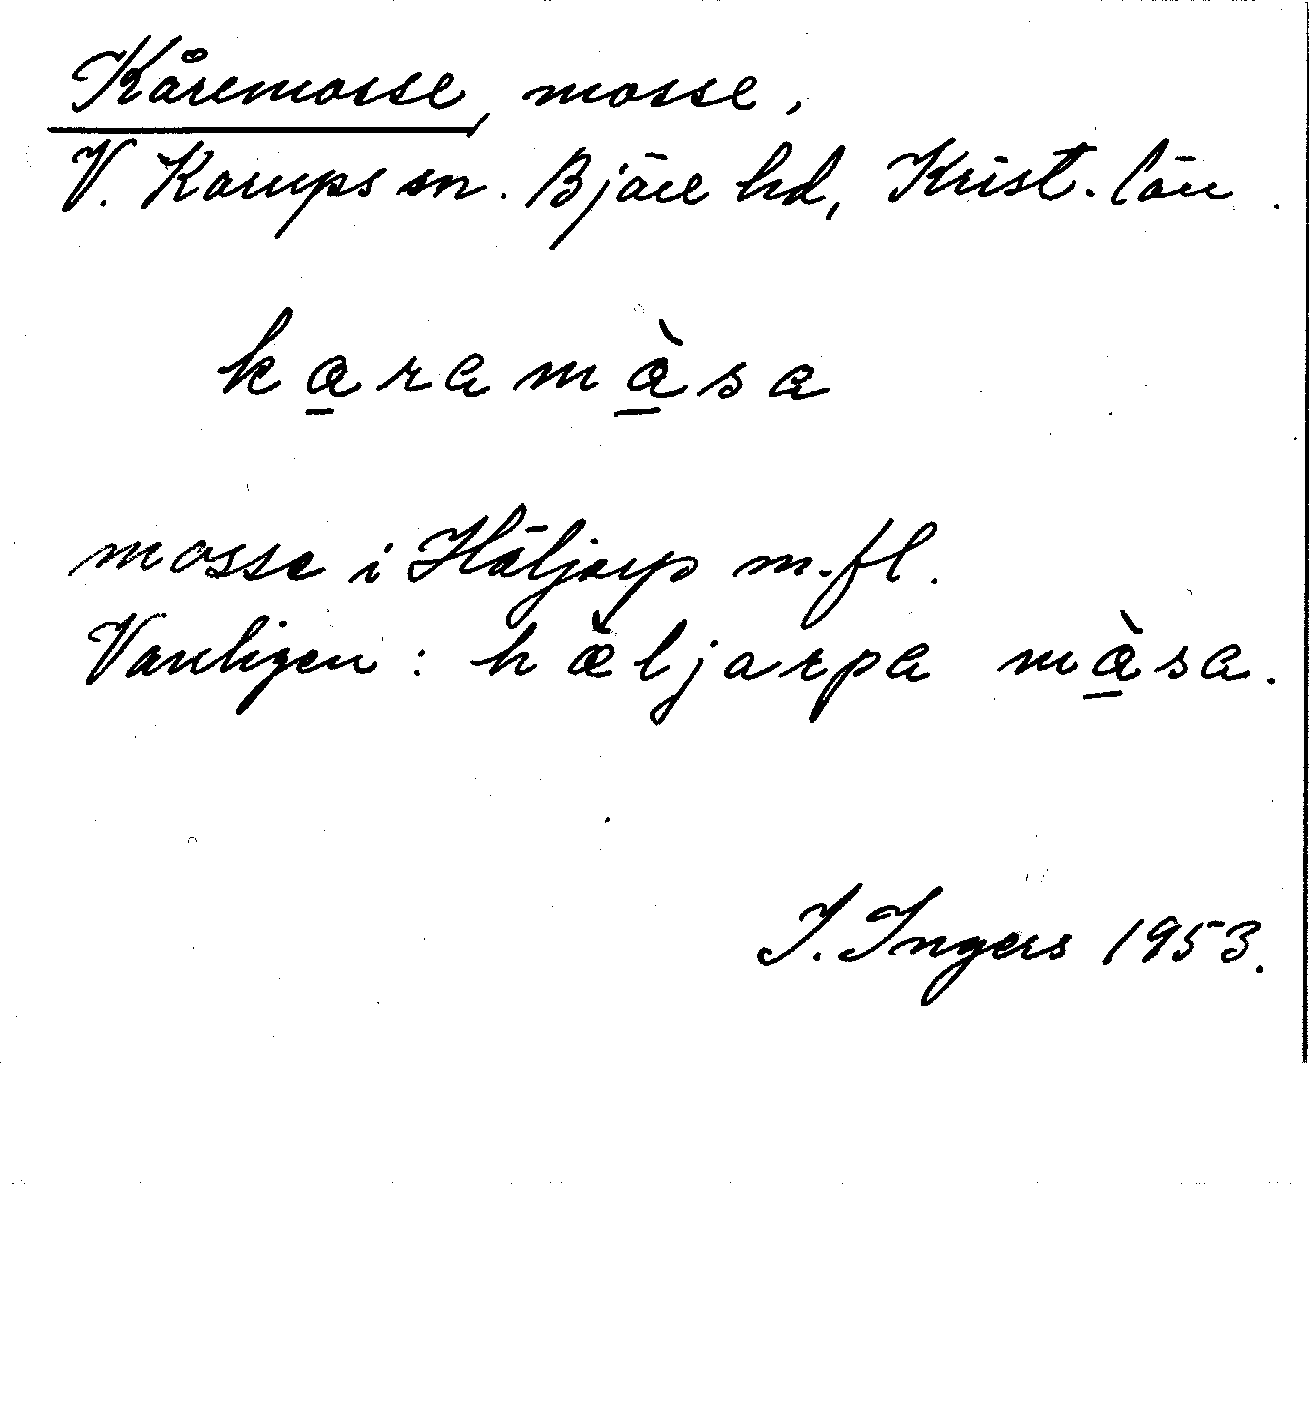 Kåremosse, mosse,
V. Karups sn. Bjäre hd, Krist. län.
ka̲rame mà̲sa
mosse i Häljarp m.fl.
Vanligen: hæ̀ljarpa mà̲sa.
I. Ingers 1953.